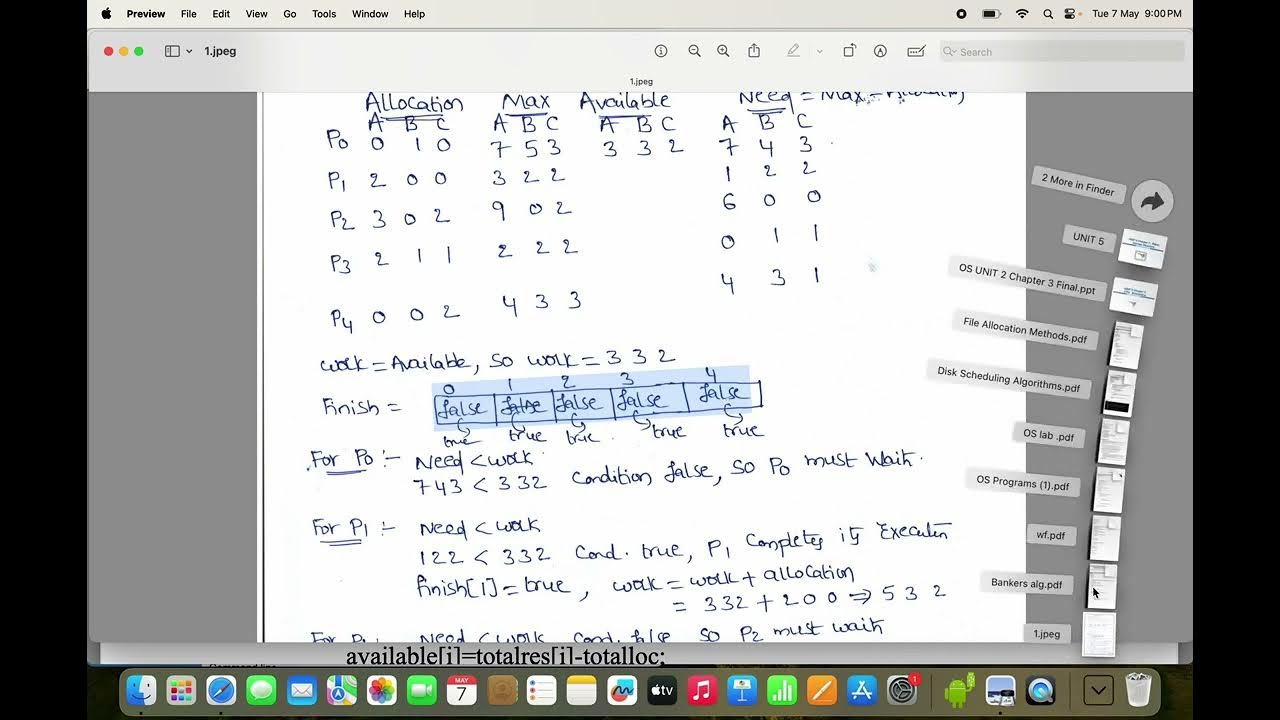 Preview File Edit View Go Tools Window Help Tue 7 May 9:00 PM
1.jpeg Search
1.jpeg
Allocation Max Available Need = Max - Allocation
A B C A B C A B C A B C
P0 0 1 0 7 5 3 3 3 2 7 4 3
P1 2 0 0 3 2 2 1 2 2
P2 3 0 2 9 0 2 6 0 0
P3 2 1 1 2 2 2 0 1 1
P4 0 0 2 4 3 3 4 3 1
work = Available, so work = 3 3 2
0 1 2 3 4
Finish = false false false false false
true true true true true
For P0 :- Need < work
743 < 332 Condition false, so P0 must wait.
For P1 :- Need < work
122 < 332 Cond. true, P1 Completes its Execution
Finish[1] = true, work = work + allocation
= 332 + 200 => 5 3 2
Need < work Cond. false so P2 must wait
available[i]=totalres[i]-totalloc;
2 More in Finder
UNIT 5
OS UNIT 2 Chapter 3 Final.ppt
File Allocation Methods.pdf
Disk Scheduling Algorithms.pdf
OS lab .pdf
OS Programs (1).pdf
wf.pdf
Bankers alg.pdf
1.jpeg
MAY
7
tv
1